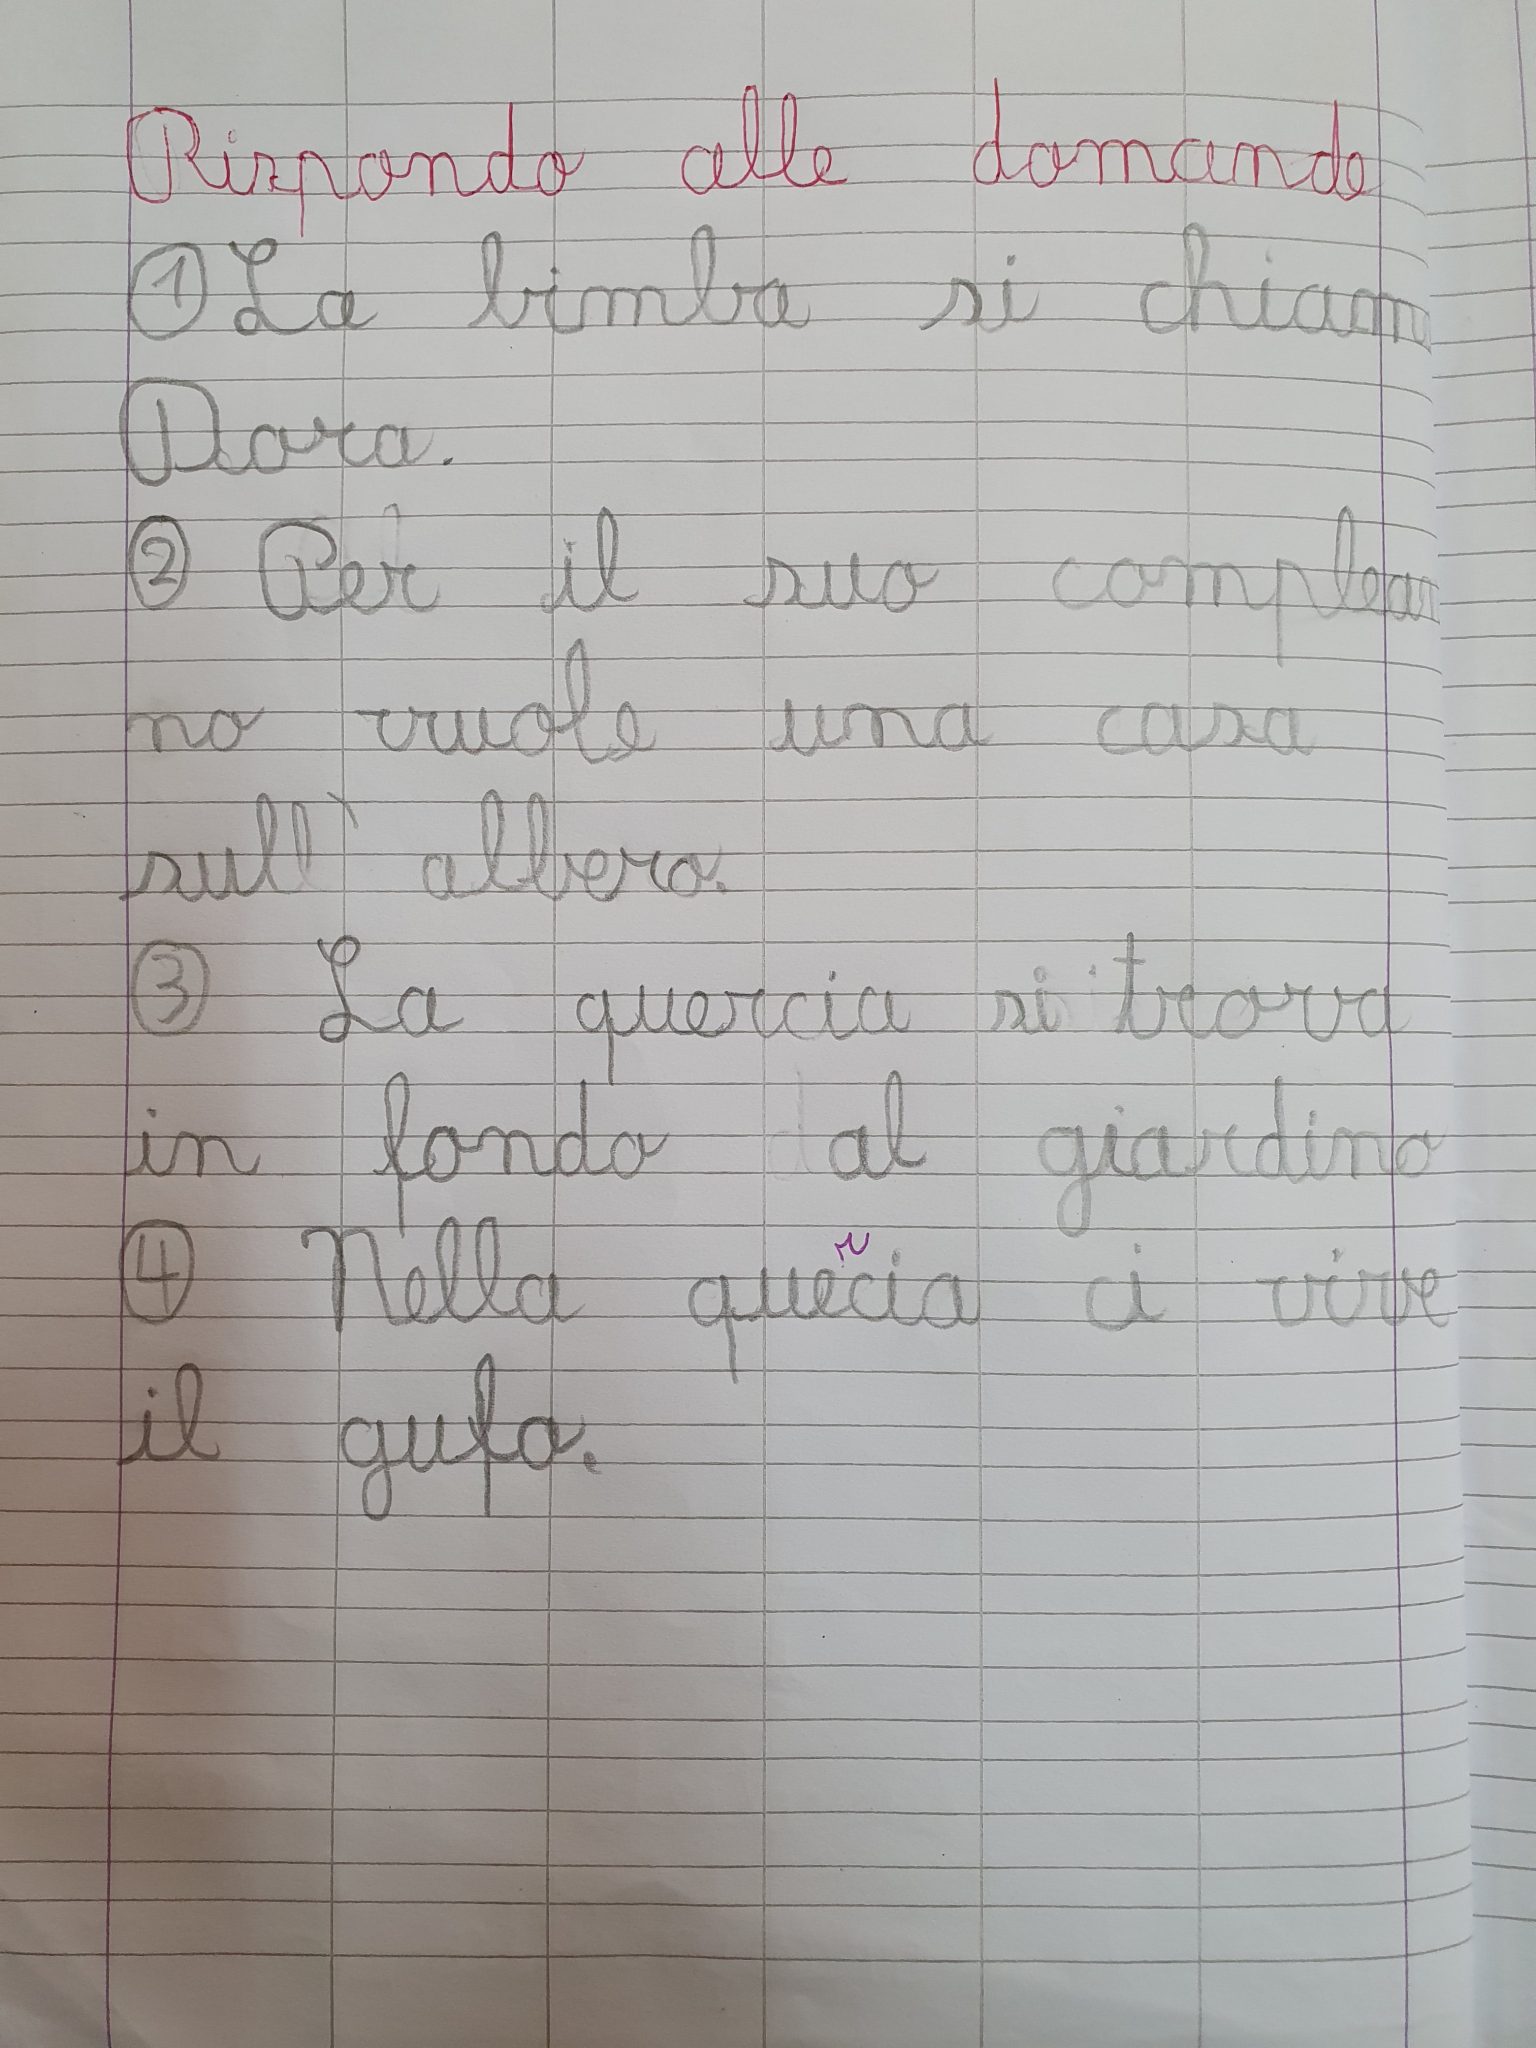 Rispondo alle domande
① La bimba si chiam
Dora.
② Per il suo complean
no vuole una casa
sull' albero.
③ La quercia si trova
in fondo al giardino
r
④ Nella quecia ci vive
il gufo.